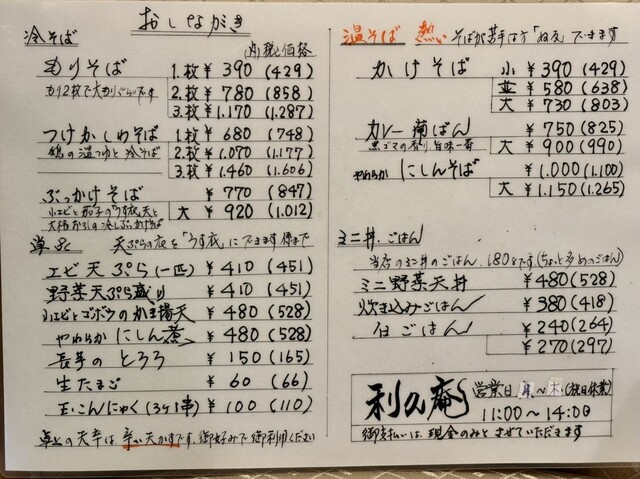 おしながき
冷そば
内税と価格
もりそば 1枚 ¥390 (429)
もり2枚で大もりぐらいです 2枚 ¥780 (858)
3枚 ¥1.170 (1.287)
つけかしわそば 1枚 ¥680 (748)
鶏の温つゆと冷そば 2枚 ¥1.070 (1.177)
3枚 ¥1.460 (1.606)
ぶっかけそば ¥770 (847)
小エビと茄子のうす衣天と 大 ¥920 (1.012)
大根おろしの冷しぶっかけそば
単品 天ぷらの衣を「うす衣」にできます
エビ天ぷら(一匹) ¥410 (451)
野菜天ぷら盛り ¥410 (451)
小エビとゴボウのかき揚天 ¥480 (528)
やわらかにしん煮 ¥480 (528)
長芋のとろろ ¥150 (165)
生たまご ¥60 (66)
玉こんにゃく(3ケ1串) ¥100 (110)
卓上の天辛は、辛い天かすです。御好みで御利用ください
温そば 熱い そばが苦手な方「ぬる」できます
かけそば 小 ¥390 (429)
並 ¥580 (638)
大 ¥730 (803)
カレー南ばん ¥750 (825)
黒ゴマの香り 旨味一番 大 ¥900 (990)
やわらかにしんそば ¥1.000 (1.100)
大 ¥1.150 (1.265)
ミニ丼.ごはん
当店のミニ丼のごはん.180gです(ちょっと多めのごはん)
ミニ野菜天丼 ¥480 (528)
炊き込みごはん ¥380 (418)
白ごはん ¥240 (264)
¥270 (297)
利久庵
営業日 月〜木(祝日休業)
11:00〜14:00
御支払いは、現金のみとさせていただきます